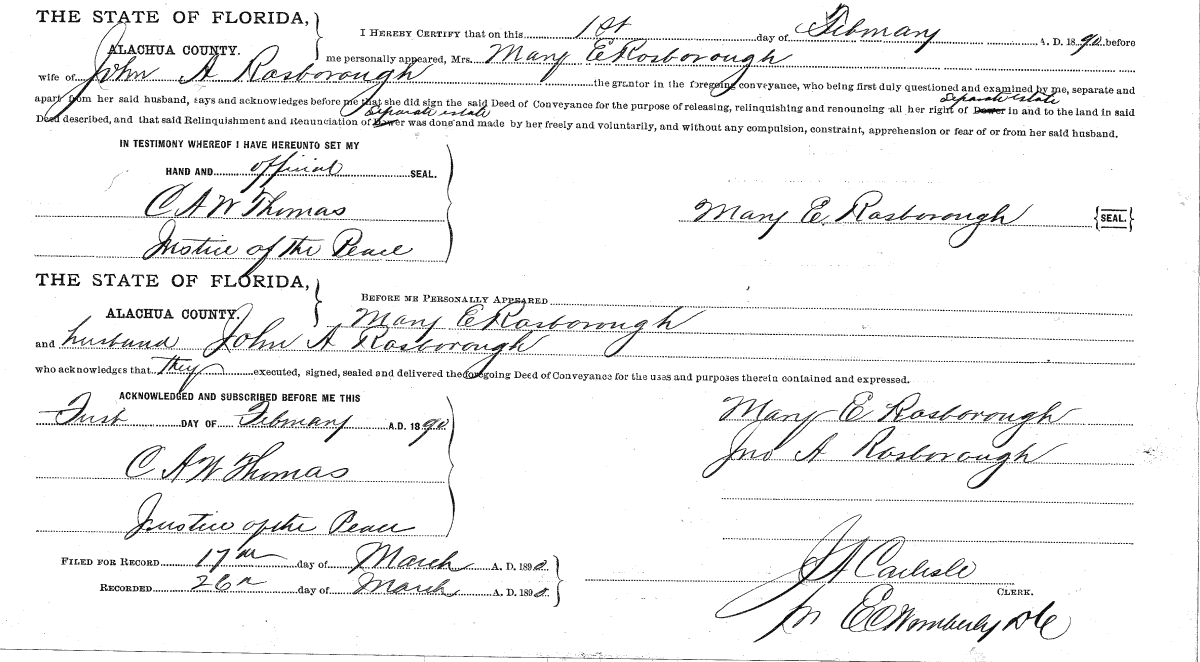 THE STATE OF FLORIDA,
ALACHUA COUNTY.
I HEREBY CERTIFY that on this 1st day of February A. D. 1890 before
me personally appeared, Mrs. Mary E Rosborough
wife of John A Rosborough the grantor in the foregoing conveyance, who being first duly questioned and examined by me, separate and
apart from her said husband, says and acknowledges before me that she did sign the said Deed of Conveyance for the purpose of releasing, relinquishing and renouncing all her right of Dower Separate estate in and to the land in said
Deed described, and that said Relinquishment and Renunciation of Dower Separate estate was done and made by her freely and voluntarily, and without any compulsion, constraint, apprehension or fear of or from her said husband.
IN TESTIMONY WHEREOF I HAVE HEREUNTO SET MY
HAND AND official SEAL.
C A W Thomas
Justice of the Peace
Mary E. Rosborough {SEAL.}
THE STATE OF FLORIDA,
ALACHUA COUNTY.
BEFORE ME PERSONALLY APPEARED
Mary E Rosborough
and husband John A Rosborough
who acknowledges that they executed, signed, sealed and delivered the foregoing Deed of Conveyance for the uses and purposes therein contained and expressed.
ACKNOWLEDGED AND SUBSCRIBED BEFORE ME THIS
First DAY OF February A.D. 1890
C A W Thomas
Justice of the Peace
Mary E Rosborough
Jno A Rosborough
FILED FOR RECORD 17th day of March A. D. 1890.
RECORDED 26th day of March A. D. 1890.
Carlisle
CLERK.
E C Wimberly DC